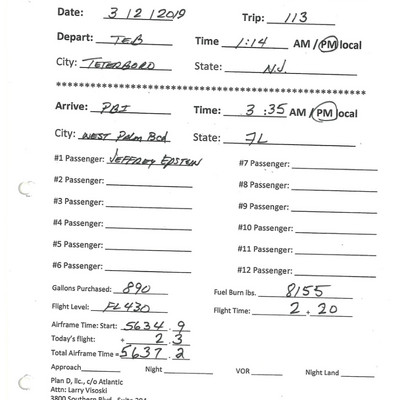 Date: 3 / 2 / 2019 Trip: 113
Depart: TEB Time 1:14 AM / PM local
City: TETERBORO State: N.J.
****************************************************
Arrive: PBI Time: 3:35 AM / PM local
City: WEST Palm Bch State: FL
#1 Passenger: JEFFREY EPSTEIN #7 Passenger:
#2 Passenger: #8 Passenger:
#3 Passenger: #9 Passenger:
#4 Passenger: #10 Passenger:
#5 Passenger: #11 Passenger:
#6 Passenger: #12 Passenger:
Gallons Purchased: 890 Fuel Burn lbs. 8155
Flight Level: FL430 Flight Time: 2.20
Airframe Time: Start: 5634.9
Today's flight: + 2.3
Total Airframe Time = 5637.2
Approach Night VOR Night Land
Plan D, llc., c/o Atlantic
Attn: Larry Visoski
3800 Southern Blvd. Suite 204